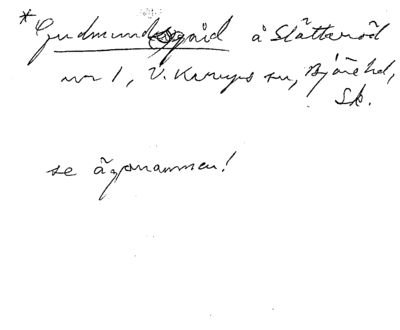 *Gudmundsgård å Slättaröd
nr 1, V. Karups sn, Bjäre hd,
Sk.
se ägonamnen!